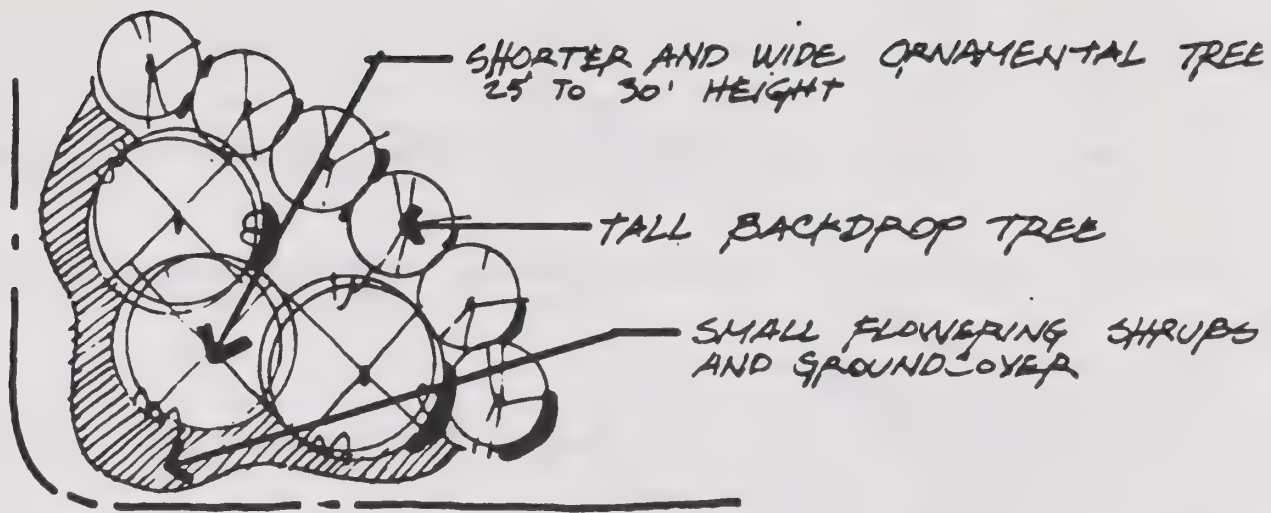 SHORTER AND WIDE ORNAMENTAL TREE
25' TO 30' HEIGHT
TALL BACKDROP TREE
SMALL FLOWERING SHRUBS
AND GROUNDCOVER